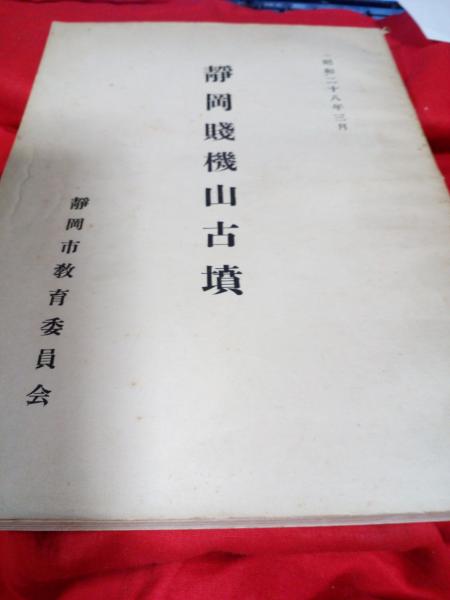 昭和二十八年三月
靜岡賤機山古墳
靜岡市教育委員会